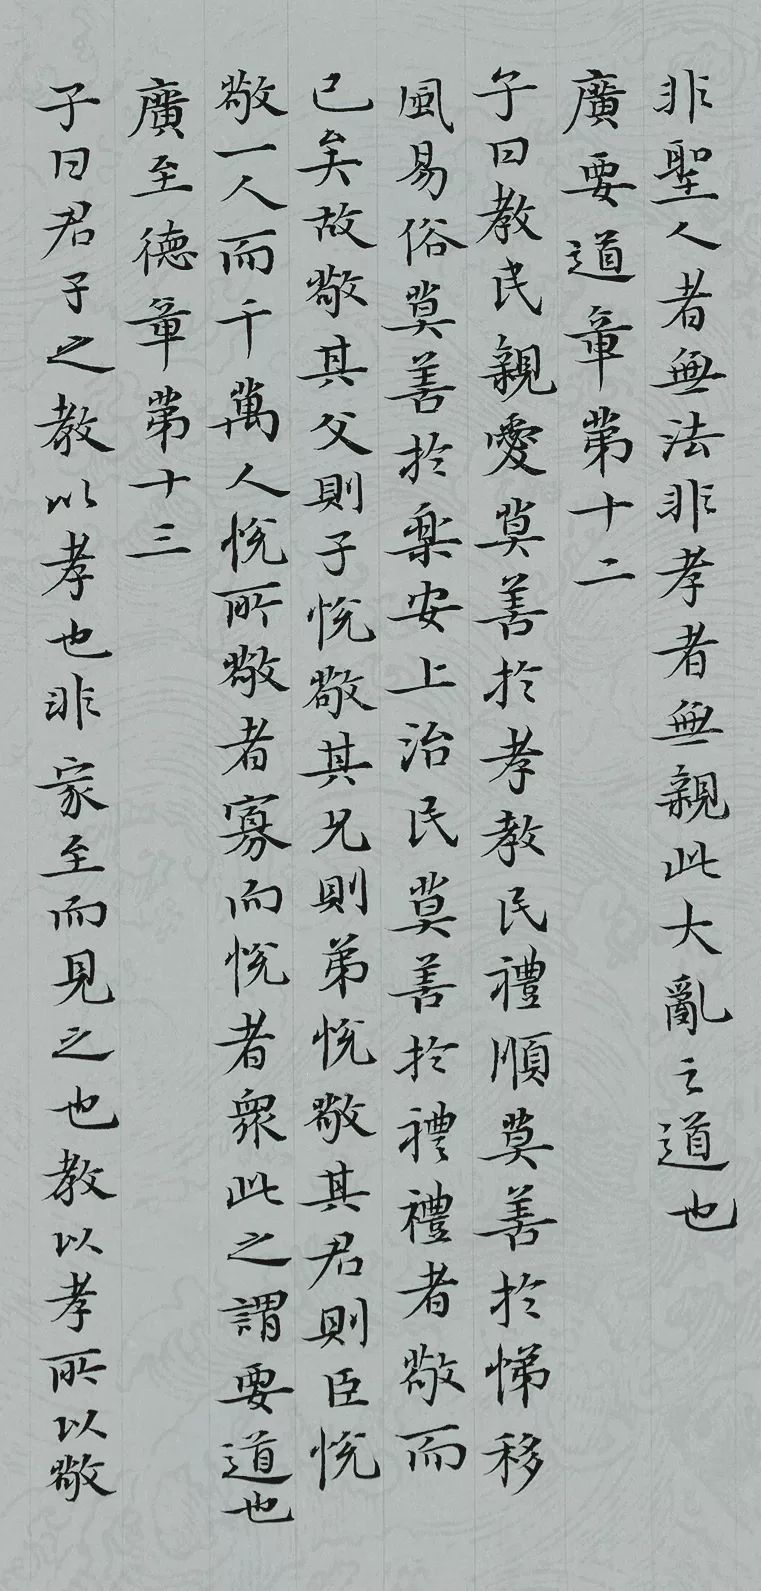 非聖人者無法非孝者無親此大亂之道也
廣要道章第十二
子曰教民親愛莫善於孝教民禮順莫善於悌移
風易俗莫善於樂安上治民莫善於禮禮者敬而
已矣故敬其父則子悅敬其兄則弟悅敬其君則臣悅
敬一人而千萬人悅所敬者寡而悅者衆此之謂要道也
廣至德章第十三
子曰君子之教以孝也非家至而見之也教以孝所以敬